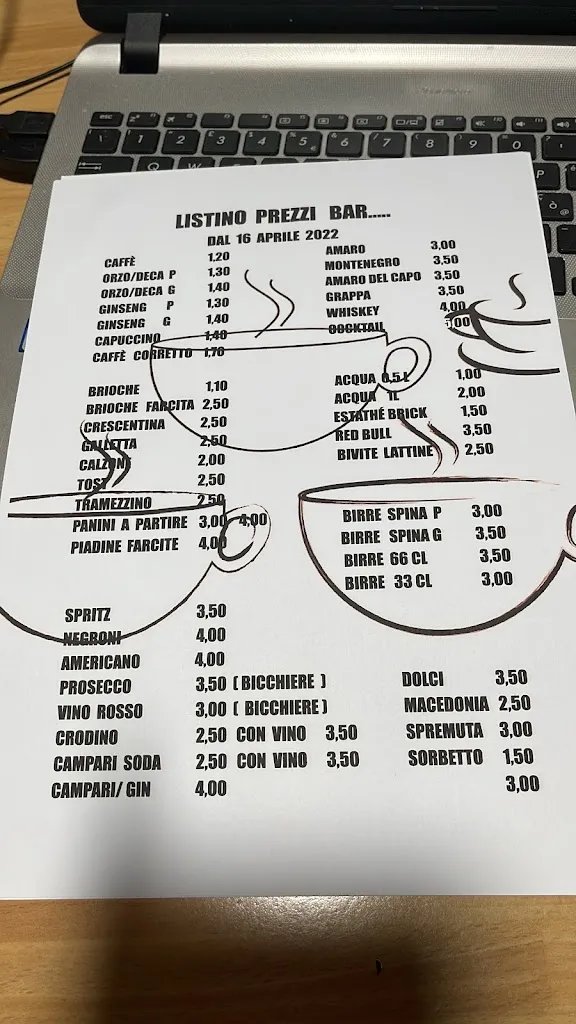 LISTINO PREZZI BAR.....
DAL 16 APRILE 2022
CAFFÈ 1,20
ORZO/DECA P 1,30
ORZO/DECA G 1,40
GINSENG P 1,30
GINSENG G 1,40
CAPUCCINO 1,40
CAFFÈ CORRETTO 1,70
BRIOCHE 1,10
BRIOCHE FARCITA 2,50
CRESCENTINA 2,50
GALLETTA 2,50
CALZONE 2,00
TOST 2,50
TRAMEZZINO 2,50
PANINI A PARTIRE 3,00 4,00
PIADINE FARCITE 4,00
SPRITZ 3,50
NEGRONI 4,00
AMERICANO 4,00
PROSECCO 3,50 ( BICCHIERE )
VINO ROSSO 3,00 ( BICCHIERE )
CRODINO 2,50 CON VINO 3,50
CAMPARI SODA 2,50 CON VINO 3,50
CAMPARI/ GIN 4,00
AMARO 3,00
MONTENEGRO 3,50
AMARO DEL CAPO 3,50
GRAPPA 3,50
WHISKEY 4,00
COCKTAIL
ACQUA 0,5 L 1,00
ACQUA 1L 2,00
ESTATHÉ BRICK 1,50
RED BULL 3,50
BIVITE LATTINE 2,50
BIRRE SPINA P 3,00
BIRRE SPINA G 3,50
BIRRE 66 CL 3,50
BIRRE 33 CL 3,00
DOLCI 3,50
MACEDONIA 2,50
SPREMUTA 3,00
SORBETTO 1,50
3,00